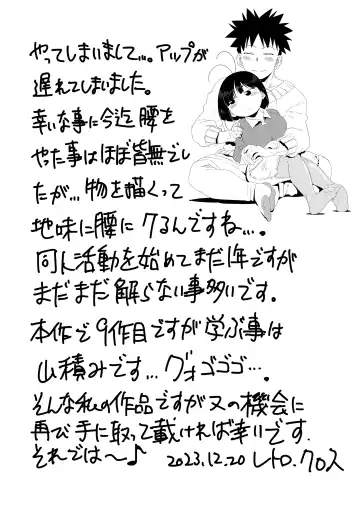 やってしまいまして…。アップが
遅れてしまいました。
幸いな事に今迄腰を
やった事はほぼ皆無でし
たが…物を描くって
地味に腰にクるんですね…。
同人活動を始めてまだ1年ですが
まだまだ解らない事多いです。
本作で9作目ですが学ぶ事は
山積みです…グォゴゴゴ…。
そんな私の作品ですが又の機会に
再び手に取って載ければ幸いです.
それでは〜♪ 2023.12.20 レトロ.クロス